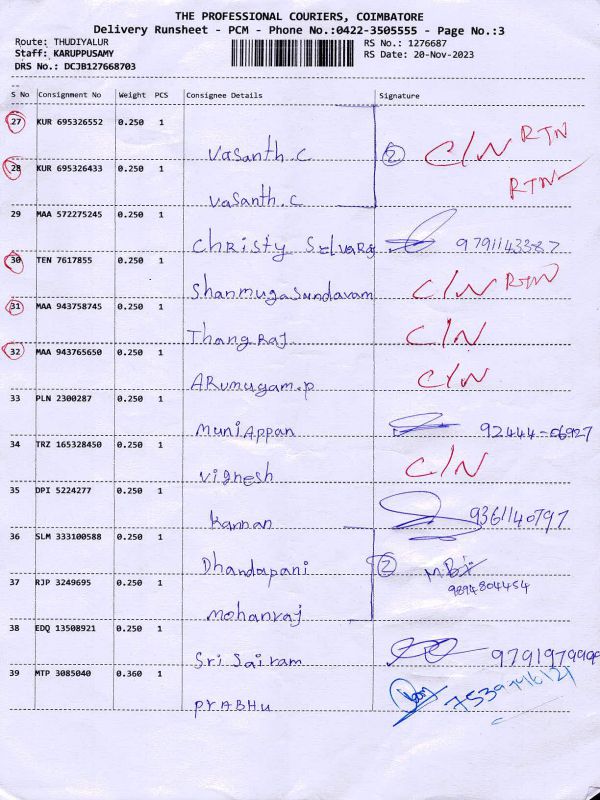 THE PROFESSIONAL COURIERS, COIMBATORE
Delivery Runsheet - PCM - Phone No.:0422-3505555 - Page No.:3
Route: THUDIYALUR RS No.: 1276687
Staff: KARUPPUSAMY RS Date: 20-Nov-2023
DRS No.: DCJB127668703
S No Consignment No Weight PCS Consignee Details Signature
27 KUR 695326552 0.250 1
Vasanth.C 2 C/N RTN
28 KUR 695326433 0.250 1
Vasanth.C RTN
29 MAA 572275245 0.250 1
Christy Selvaraj 9791143387
30 TEN 7617855 0.250 1
Shanmugasundaram C/N RTN
31 MAA 943758745 0.250 1
Thangraj C/N
32 MAA 943765650 0.250 1
ARumugam.p C/N
33 PLN 2300287 0.250 1
MuniAppan 92444-06927
34 TRZ 165328450 0.250 1
Vighesh C/N
35 DPI 5224277 0.250 1
Kannan 9361140797
36 SLM 333100588 0.250 1
Dhandapani 2
37 RJP 3249695 0.250 1 9894804454
Mohanraj
38 EDQ 13508921 0.250 1
Sri Sairam 9791979999
39 MTP 3085040 0.360 1
PrABHu